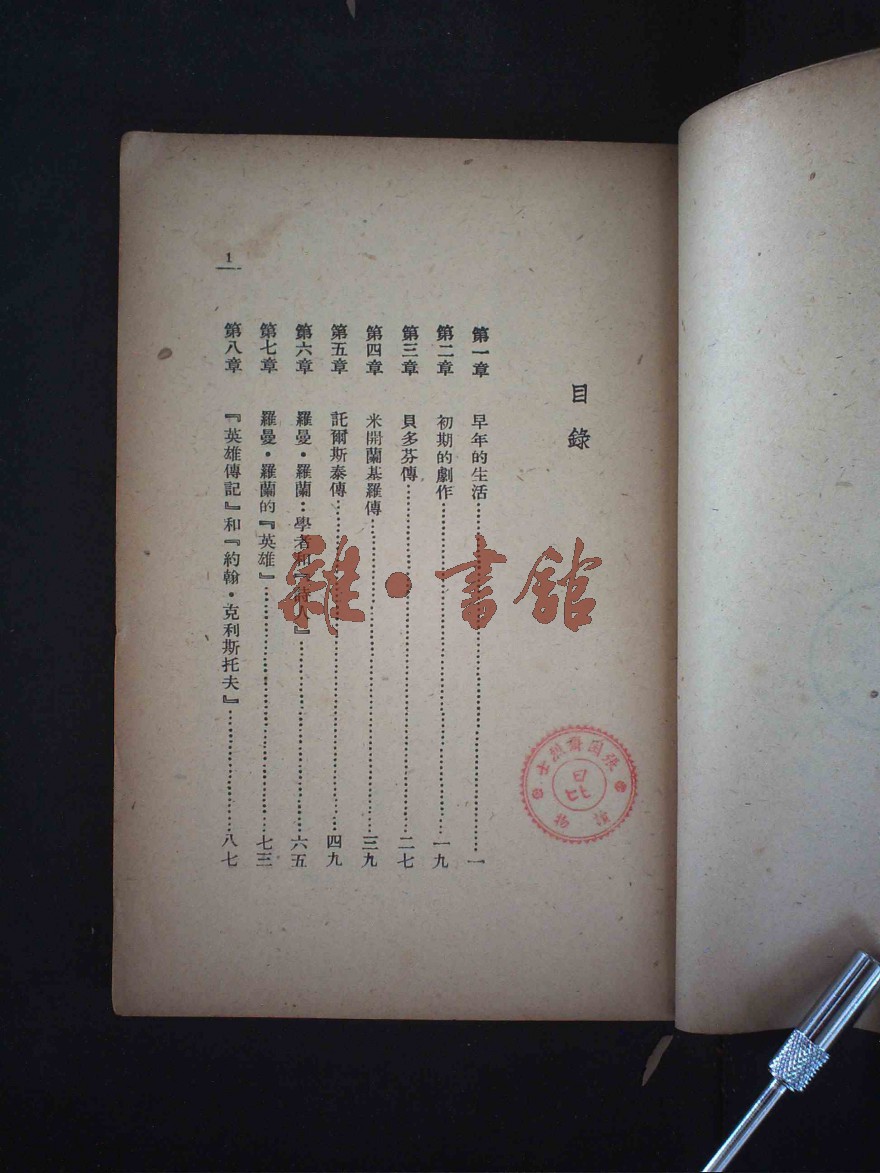 目錄
第一章 早年的生活……一
第二章 初期的劇作……一九
第三章 貝多芬傳……二七
第四章 米開蘭基羅傳……三九
第五章 託爾斯泰傳……四九
第六章 羅曼·羅蘭：學者和『詩人』……六五
第七章 羅曼·羅蘭的『英雄』……七三
第八章 『英雄傳記』和『約翰·克利斯托夫』……八七
1
雜·書館